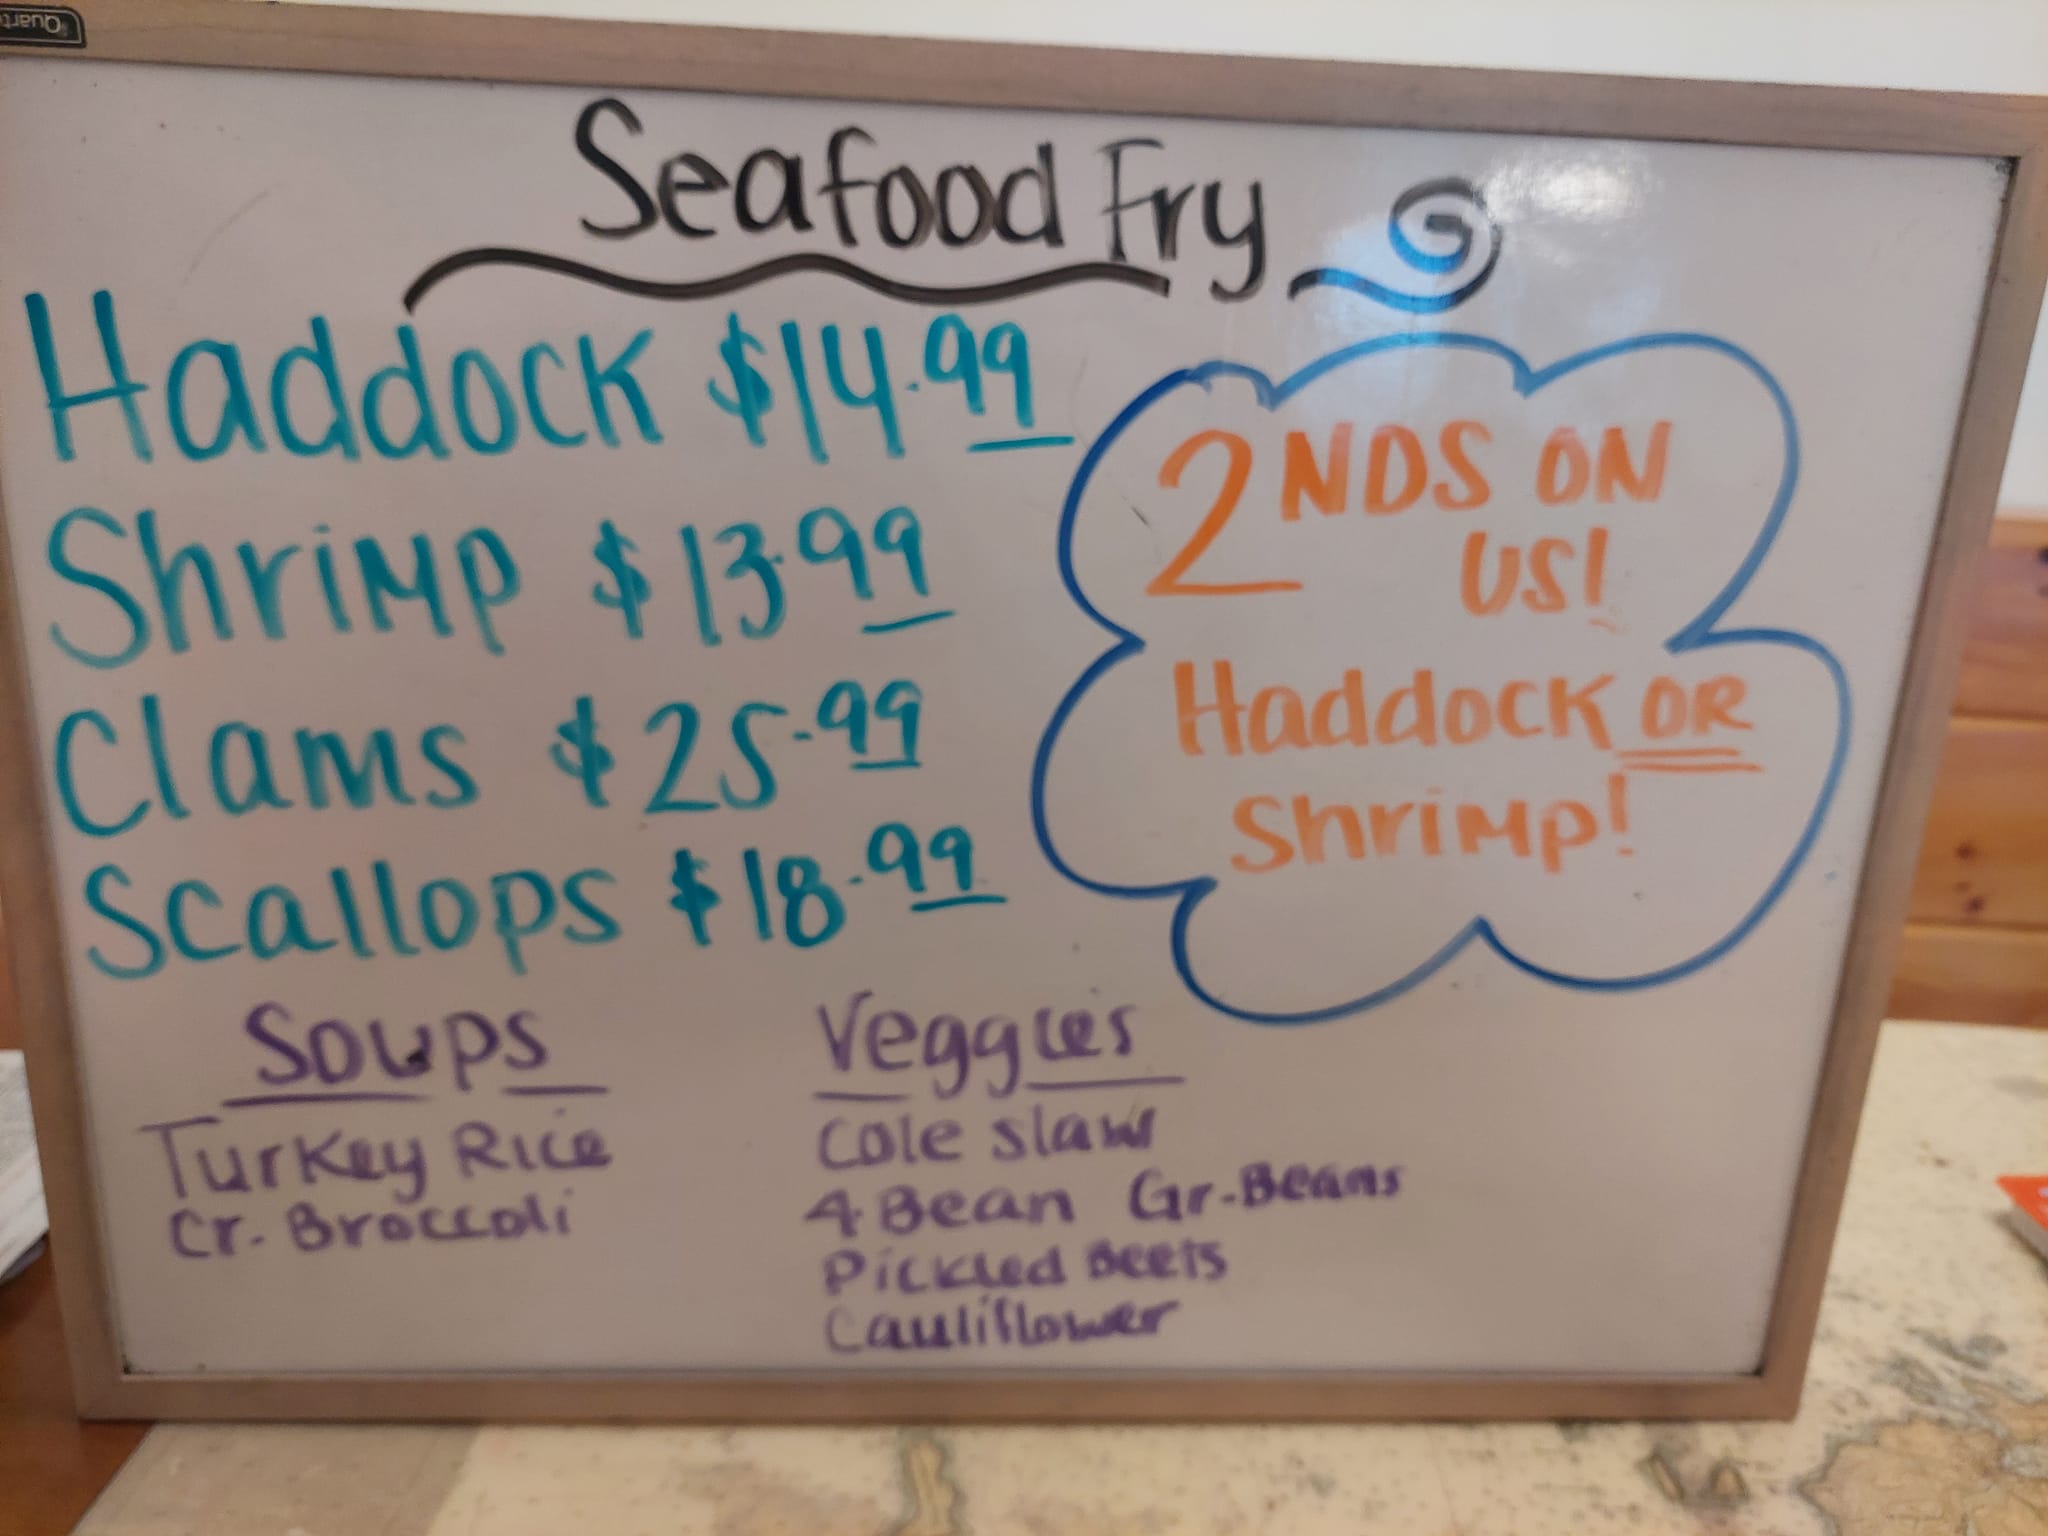 Quart
Seafood Fry
Haddock $14.99
Shrimp $13.99
Clams $25.99
Scallops $18.99
2NDS ON
US!
Haddock OR
Shrimp!
Soups
Turkey Rice
Cr. Broccoli
Veggies
Cole slaw
4 Bean Gr. Beans
Pickled Beets
Cauliflower